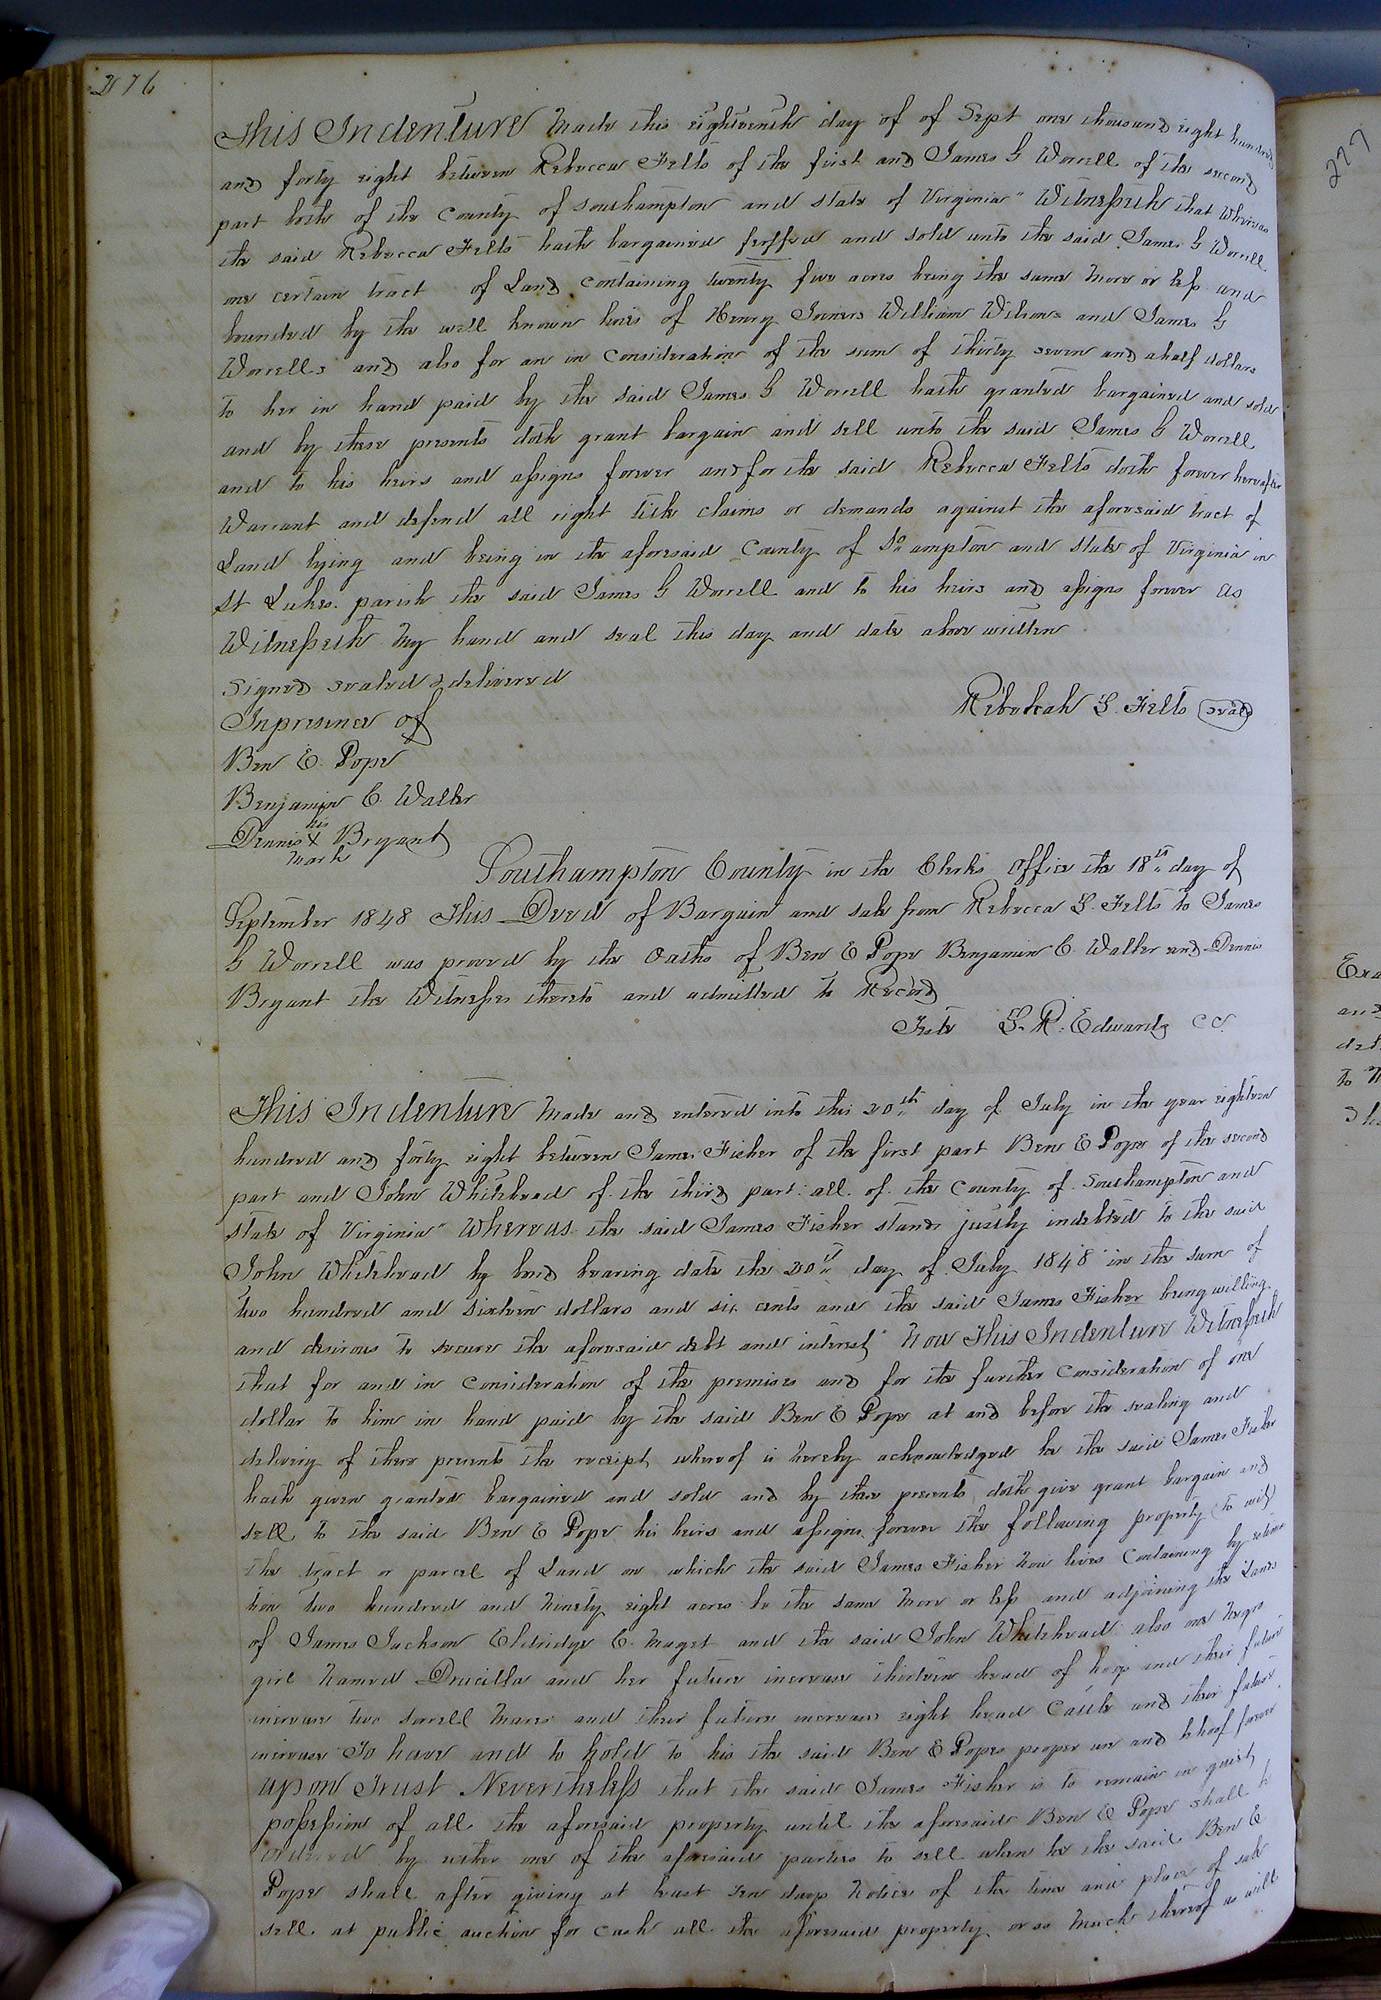 276
This Indenture Made this eighteenth day of of Sept one thousand eight hundred
and forty eight between Rebecca Felts of the first and James G Worrell of the second
part both of the County of Southampton and state of Virginia" Witnesseth that Whereas
the said Rebecca Felts hath bargained feoffed and sold unto the said James G Worrell
one certain tract of Land containing twenty five acres being the same more or less and
bounded by the well known lines of Henry Joiners William Wilsons and James G
Worrells and also for an in Consideration of the sum of thirty seven and a half dollars
to her in hand paid by the said James G Worrell hath granted bargained and sold
and by these presents doth grant bargain and sell unto the said James G Worrell
and to his heirs and assigns forever and for the said Rebecca Felts doth forever hereafter
Warrant and defend all right title claims or demands against the aforesaid tract of
Land lying and being in the aforesaid County of So ampton and State of Virginia in
St Lukes parish the said James G Worrell and to his heirs and assigns forever As
Witnesseth My hand and seal this day and date above written
Signed sealed & delivered
In presence of
Rebekah S. Felts seal
Ben E. Pope
Benjamin C. Waller
his
Dennis X Bryant
mark
Southampton County in the Clerks Office the 18th day of
September 1848 This Deed of Bargain and sale from Rebecca S. Felts to James
G Worrell was proved by the Oaths of Ben E Pope Benjamin C. Waller and Dennis
Bryant the Witnesses thereto and admitted to Record
Teste L. R. Edwards CC.
This Indenture Made and entered into this 20th day of July in the year eighteen
hundred and forty eight between James Fisher of the first part Ben E Pope of the second
part and John Whitehead of the third part all of the County of Southampton and
state of Virginia" Whereas the said James Fisher stands justly indebted to the said
John Whitehead by bond bearing date the 20th day of July 1848 in the sum of
two hundred and sixteen dollars and six cents and the said James Fisher being willing
and desirous to secure the aforesaid debt and interest" Now This Indenture Witnesseth
that for and in Consideration of the premises and for the further Consideration of one
dollar to him in hand paid by the said Ben E Pope at and before the sealing and
delivery of these presents the receipt whereof is hereby acknowledged he the said James Fisher
hath given granted bargained and sold and by these presents doth give grant bargain and
sell to the said Ben E Pope his heirs and assigns forever the following property (to wit)
the tract or parcel of Land on which the said James Fisher now lives Containing by estima
tion two hundred and Ninety eight acres be the same More or less and adjoining the Lands
of James Jackson Eldridge C. Maget and the said John Whitehead also one Negro
girl Named Drucilla and her future increase thirteen head of hogs and their future
increase two sorrell Mares and their future increase eight head Cattle and their future
increase To have and to hold to his the said Ben E Popes proper use and behoof forever
upon Trust Nevertheless that the said James Fisher is to remain in quiet
possession of all the aforesaid property until the aforesaid Ben E Pope shall be
ordered by either one of the aforesaid parties to sell when he the said Ben E
Pope shall after giving at least ten days Notice of the time and place of sale
sell at public auction for cash all the aforesaid property or so Much thereof as will
277
and
to